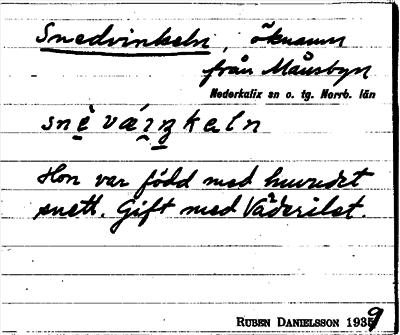 Snedvinkeln, öknamn
från Månsbyn
Nederkalix sn o. tg. Norrb. län
Hon var född med huvudet
snett. Gift med Väderilet.
RUBEN DANIELSSON 1939